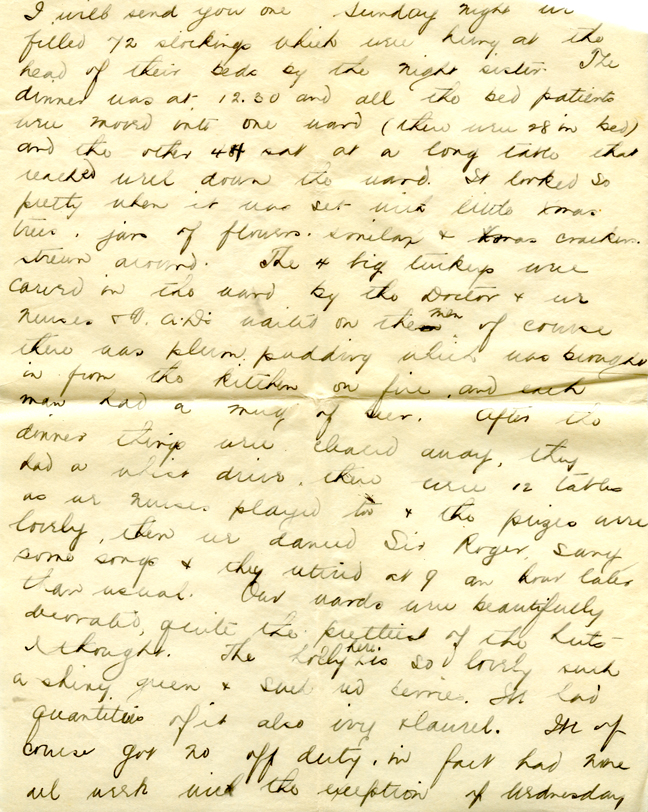 I will send you one Sunday night we
filled 72 stockings which were hung at the
head of their beds by the night sister. The
dinner was at 12.30 and all the bed patients
were moved into one ward (there were 28 in bed)
and the other 44 sat at a long table that
reached well down the ward. It looked so
pretty when it was set with little Xmas
trees, jars of flowers, smilax & Xmas crackers
strewn around. The 4 big turkeys were
carved in the ward by the Doctor & we
nurses & V.A.D's waited on the men of course
there was plum pudding which was brought
in from the kitchen on fire, and each
man had a mug of beer. After the
dinner things were cleared away, they
had a whist drive, there were 12 tables
as we nurses played too & the prizes were
lovely, then we danced Sir Roger, sang
some songs & they retired at 9 an hour later
than usual. Our wards were beautifully
decorated, quite the prettiest of the huts
I thought. The holly here is so lovely such
a shiny green & such red berries. We had
quantities of it also ivy & laurel. We of
course got no off duty, in fact had none
all week with the exception of Wednesday